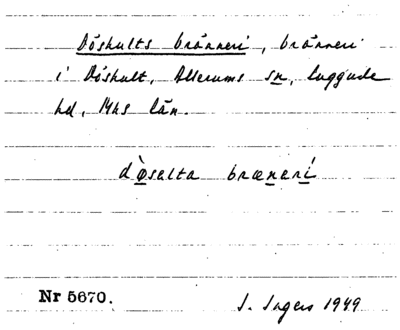 Döshults bränneri, bränneri
i Döshult, Allerums sn, Luggude
hd, Mhs län.
dø̀salta bræneri
Nr 5670. I. Ingers 1949